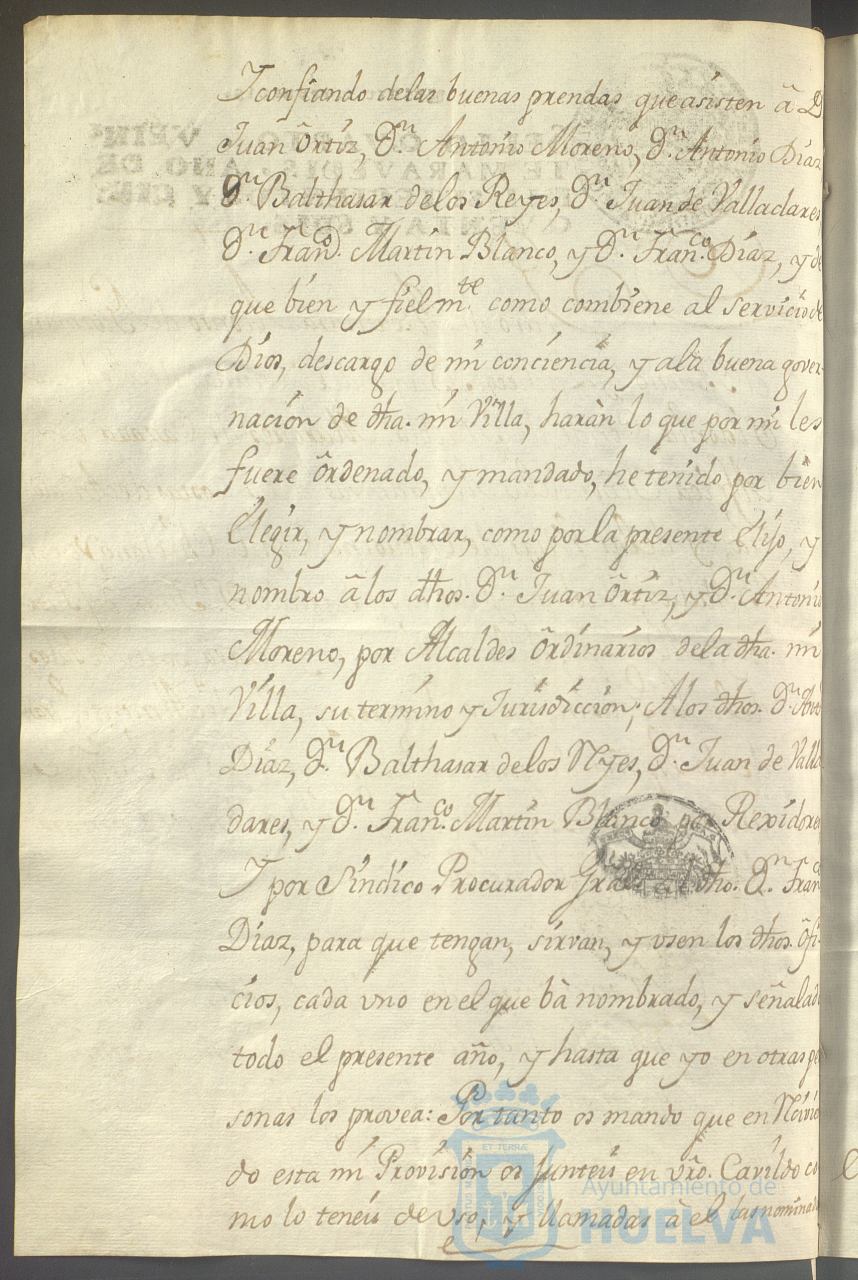 Y confiando delas buenas prendas que asisten â D
Juan Ôrtíz, D.ⁿ Antonio Moreno, D.ⁿ Antonio Díaz
D.ⁿ Balthasar delos Reyes, D.ⁿ Juan de Valladares
D.ⁿ Fran.co Martin Blanco, y D.ⁿ Fran.co Díaz, y de
que bien y fielm.te como combiene al servicio de
Dios, descargo de mi conciencia, y ala buena gover-
nación de dha. mi Villa, haràn lo que por mi les
fuere ôrdenado, y mandado, he tenido por bien
Elegir, y nombrar, como por la presente Elijo, y
nombro â los dhos. D.ⁿ Juan Ôrtiz, y D.ⁿ Antonio
Moreno, por Alcaldes Ôrdinarios dela dha. mi
Villa, su termino y Jurisdiccion; A los dhos. D.ⁿ Anto
Díaz, D.ⁿ Balthasar delos Reyes, D.ⁿ Juan de Valla
dares, y D.ⁿ Fran.co Martin Blanco por Rexidores
Y por Sindico Procurador Gral. dho. D.ⁿ Fran.co
Díaz, para que tengan, sirvan, y vsen los dhos. ôfi-
cios, cada vno en el que bà nombrado, y señalado
todo el presente año, y hasta que yo en otras pe
sonas los provea: Por tanto os mando que en Reivi
do esta mi Provisión os junteis en vro. Cavildo co
mo lo teneis de vso, y llamadas à el las nominad
ET TERRÆ
Ayuntamiento de
HUELVA